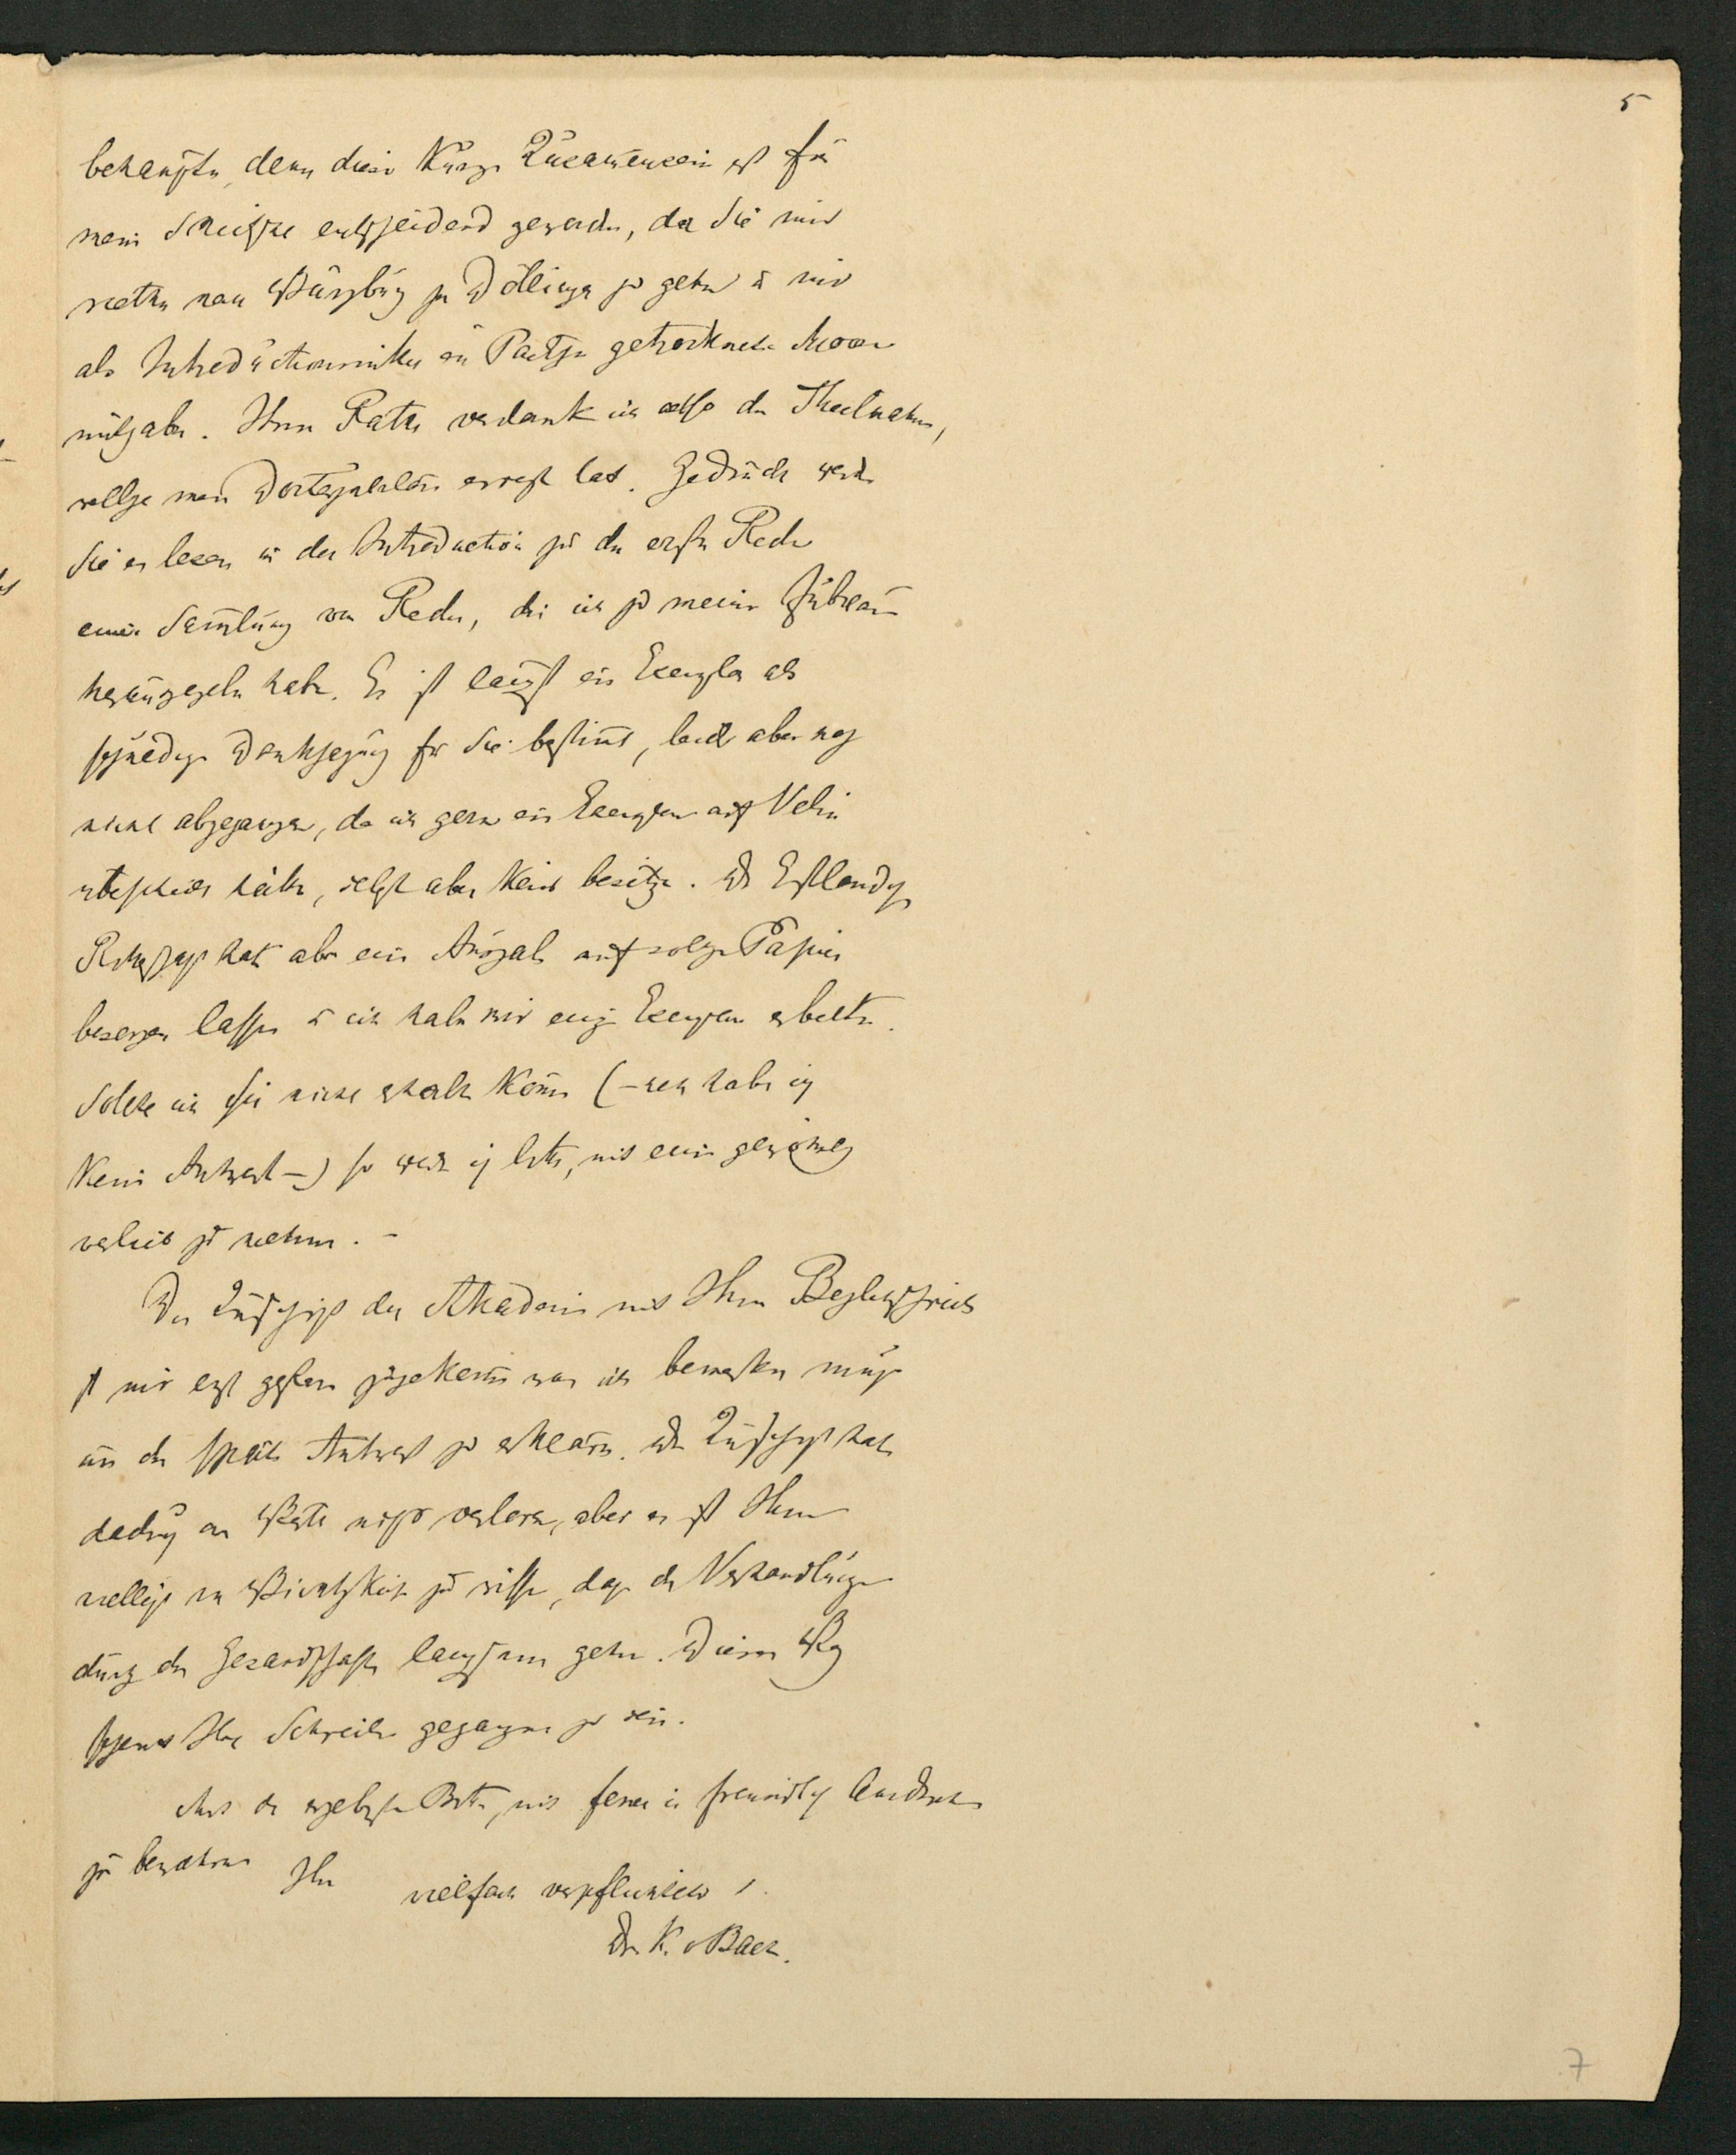 5
behaupten, denn dieses kurze Zusam̅ensein ist für
mein Schicksal entscheidend geworden, da Sie mir
riethen nach Würzburg zu Döllinger zu gehen u mir
als Introductionsmittel ein Päckchen getrockneter Moose
mitgaben. Ihrem Rathe verdanke ich also die Theilnahme,
welche mein Doctorjubiläum erregt hat. Gedruckt werden
Sie es lesen in der Introduction zu der ersten Rede
einer Sam̅lung von Reden, die ich zu meinem Jubiläum
herausgegeben habe. Es ist längst ein Exemplar als
schuldige Danksagung für Sie bestim̅t, leider aber noch
nicht abgegangen, da ich gern ein Exemplar auf Velin
überschickt hätte, selbst aber keins besitze. Die Estländische
Ritterschaft hatte aber eine Anzahl auf solchem Papier
besorgen lassen u ich habe mir einige Exemplare erbeten.
Sollte ich sie nicht erhalten kön̅en (– noch habe ich
keine Antwort –) so werde ich bitten, mit einem gewöhnlichen
verlieb zu nehmen. –
Die Zuschrift der Akademie mit Ihrem Begleitschreiben
ist mir erst gestern zugekom̅en was ich bemerken muss
um die späte Antwort zu erklären. Die Zuschrift hat
dadurch an Werth nichts verloren, aber es ist Ihnen
vielleicht von Wichtigkeit zu wissen, dass die Verhandlungen
durch die Gesandtschaften langsam gehen. Diesen Weg
scheint Ihr Schreiben gegangen zu sein.
Mit der ergebensten Bitte, mich ferner in freundlichem Andenken
zu bewahren Ihr vielfach verpflichteter
Dr. K. v Baer.
7